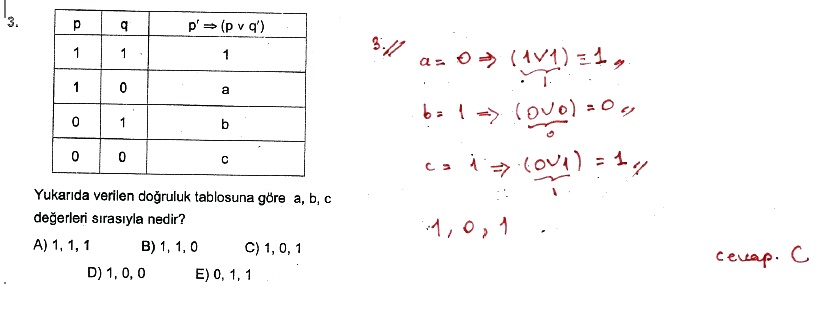 3.
p q p' ⇒ (p v q')
1 1 1
1 0 a
0 1 b
0 0 c
Yukarıda verilen doğruluk tablosuna göre a, b, c
değerleri sırasıyla nedir?
A) 1, 1, 1 B) 1, 1, 0 C) 1, 0, 1
D) 1, 0, 0 E) 0, 1, 1
3.//
a = 0 ⇒ (1∨1) ≡ 1 //
1
b = 1 ⇒ (0∨0) = 0 //
0
c = 1 ⇒ (0∨1) = 1 //
1
1, 0, 1
cevap. C